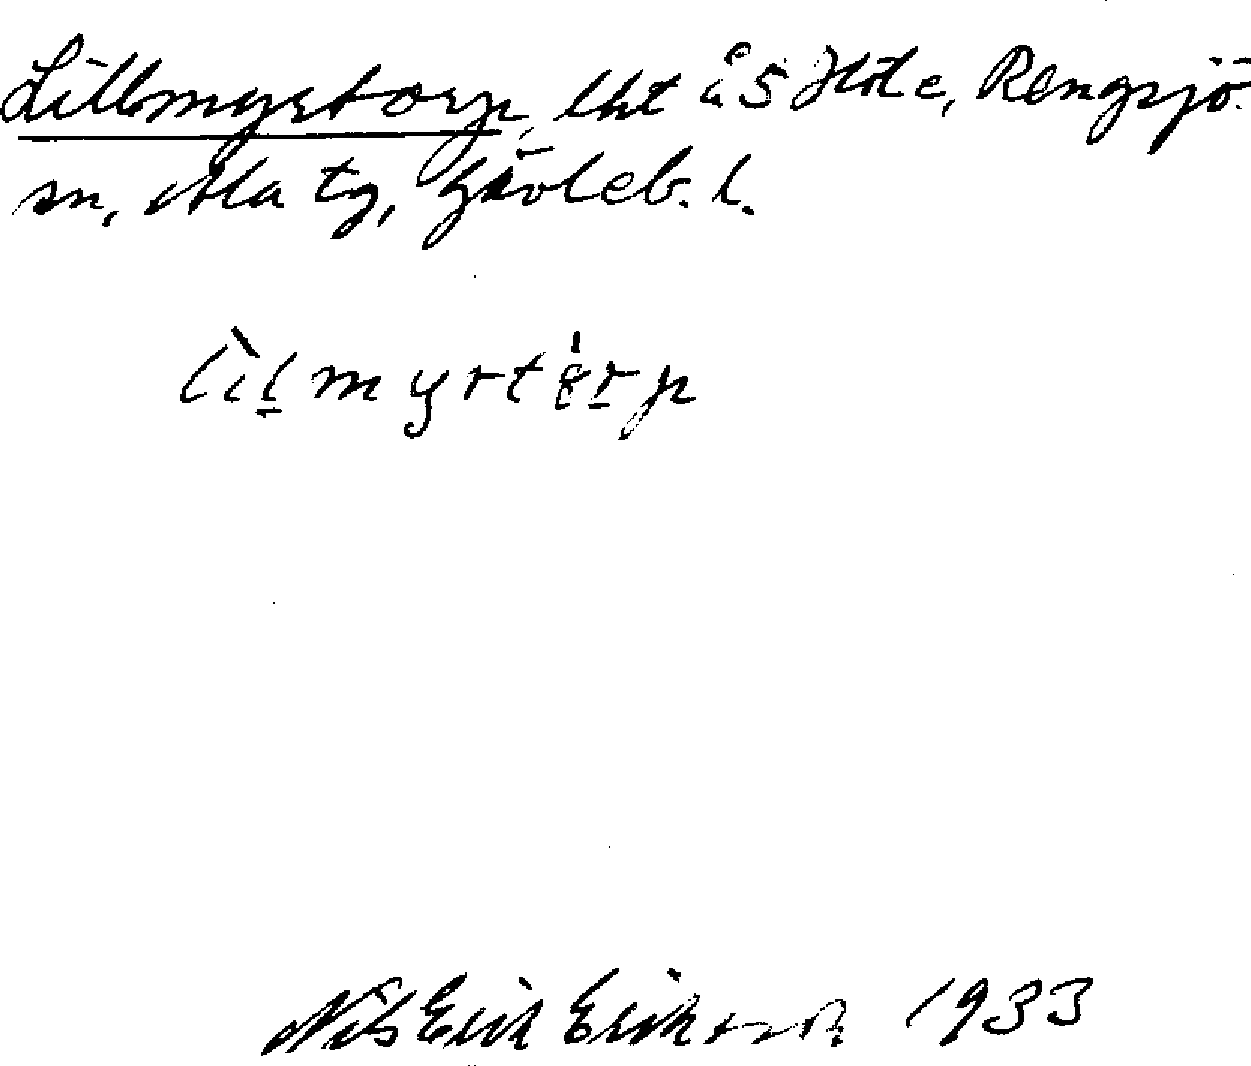 Lillmyrtorp, lht å S Höle, Rengsjö
sn, Ala tg, Gävleb. l.
lìl̠myrtè̠r̠p
Nils Erik Erikson 1933